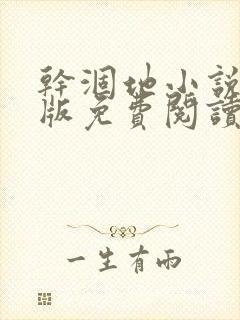 幹涸地小説
版免費閱讀
一生有雨